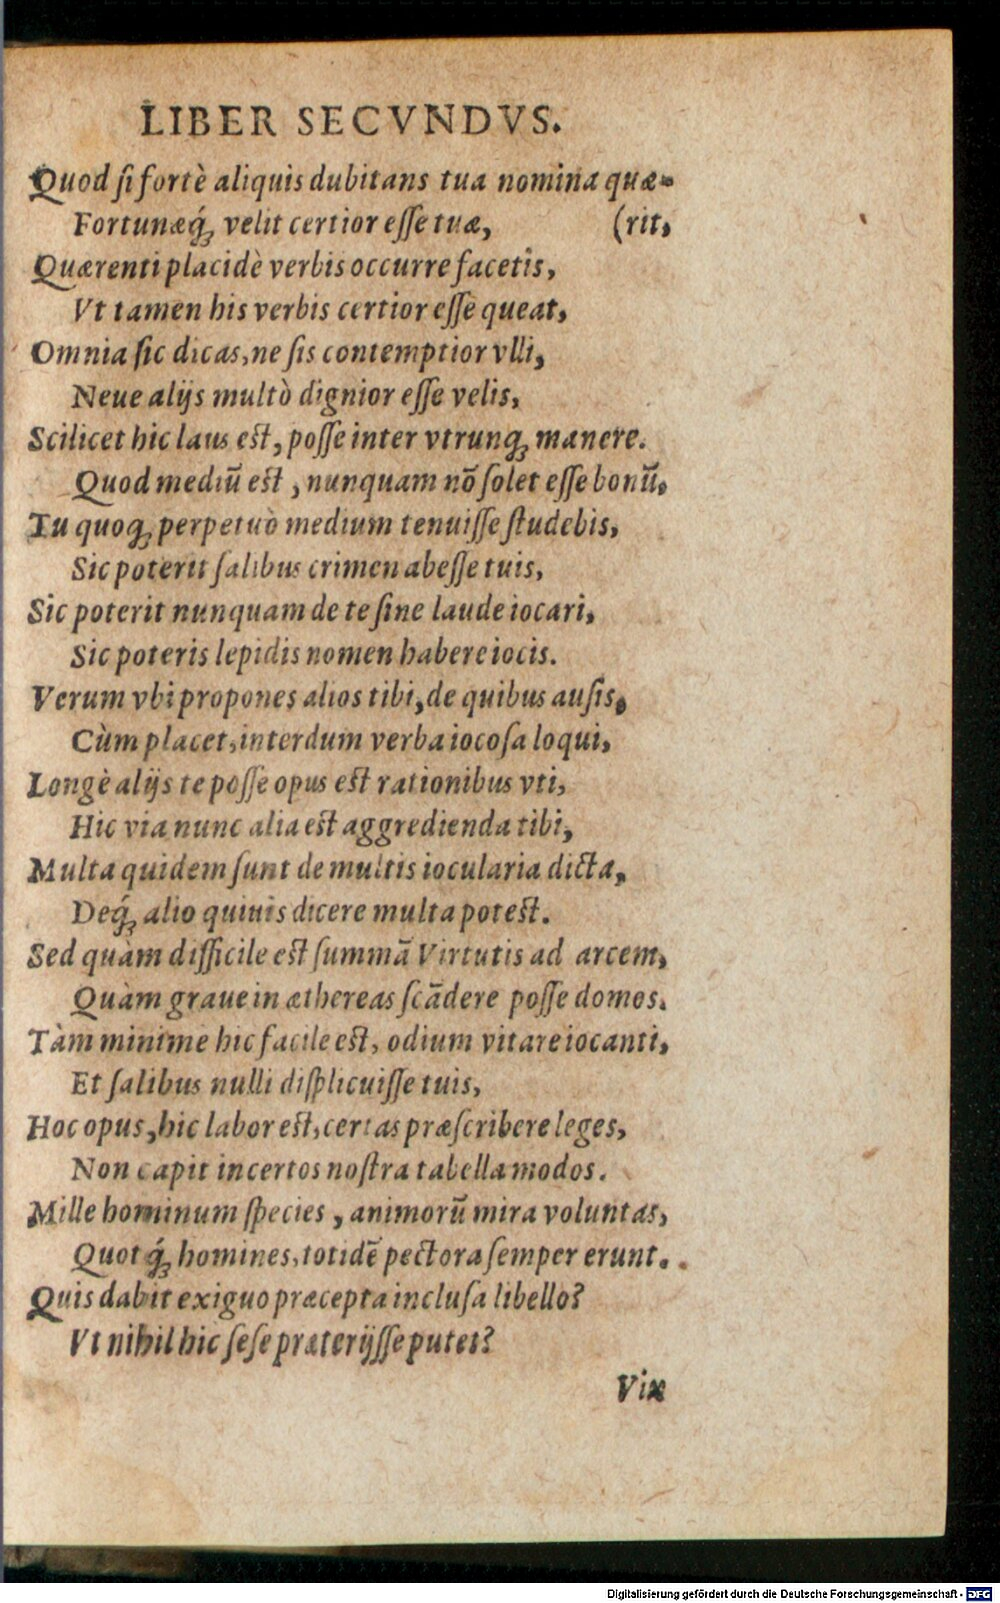 LIBER SECVNDVS.
Quod ſi fortè aliquis dubitans tua nomina quæ-
Fortunæq́; velit certior eſſe tuæ, (rit,
Quærenti placidè verbis occurre facetis,
Vt tamen his verbis certior eſſe queat,
Omnia ſic dicas, ne ſis contemptior vlli,
Neue alijs multò dignior eſſe velis,
Scilicet hic laus eſt, poſſe inter vtrunq; manere.
Quod mediũ eſt, nunquam nõ ſolet eſſe bonũ.
Tu quoq; perpetuò medium tenuiſſe ſtudebis,
Sic poterit ſalibus crimen abeſſe tuis,
Sic poterit nunquam de te ſine laude iocari,
Sic poteris lepidis nomen habere iocis.
Verum vbi propones alios tibi, de quibus auſis,
Cùm placet, interdum verba iocoſa loqui,
Longè alijs te poſſe opus eſt rationibus vti,
Hic via nunc alia eſt aggredienda tibi,
Multa quidem ſunt de multis iocularia dicta,
Deq́; alio quiuis dicere multa poteſt.
Sed quàm difficile eſt ſummã Virtutis ad arcem,
Quàm graue in æthereas ſcãdere poſſe domos.
Tàm minime hic facile eſt, odium vitare iocanti,
Et ſalibus nulli diſplicuiſſe tuis,
Hoc opus, hic labor eſt, certas præſcribere leges,
Non capit incertos noſtra tabella modos.
Mille hominum ſpecies, animorũ mira voluntas,
Quot q́; homines, totidẽ pectora ſemper erunt.
Quis dabit exiguo præcepta incluſa libello?
Vt nihil hic ſeſe præterijſſe putet?
Vix
Digitalisierung gefördert durch die Deutsche Forschungsgemeinschaft - DFG